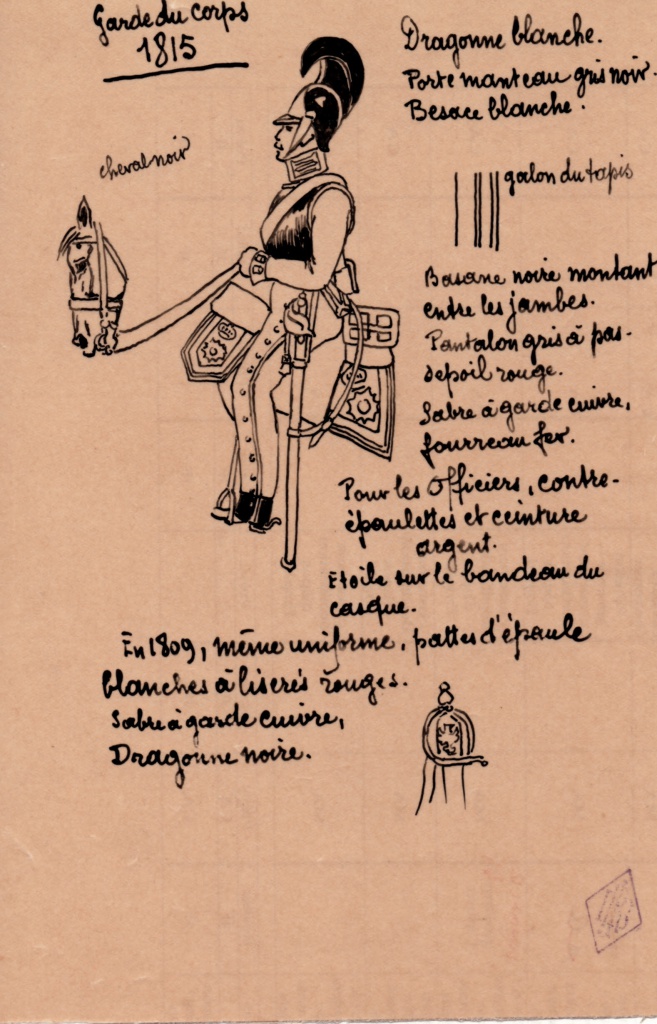 Garde du corps
1815
Dragonne blanche.
Porte manteau gris noir.
Besace blanche.
cheval noir
galon du tapis
Basane noire montant
entre les jambes.
Pantalon gris à pas-
sepoil rouge.
Sabre à garde cuivre,
fourreau fer.
Pour les Officiers, contre-
épaulettes et ceinture
argent.
Etoile sur le bandeau du
casque.
En 1809, même uniforme, pattes d'épaule
blanches à liserés rouges.
Sabre à garde cuivre,
Dragonne noire.